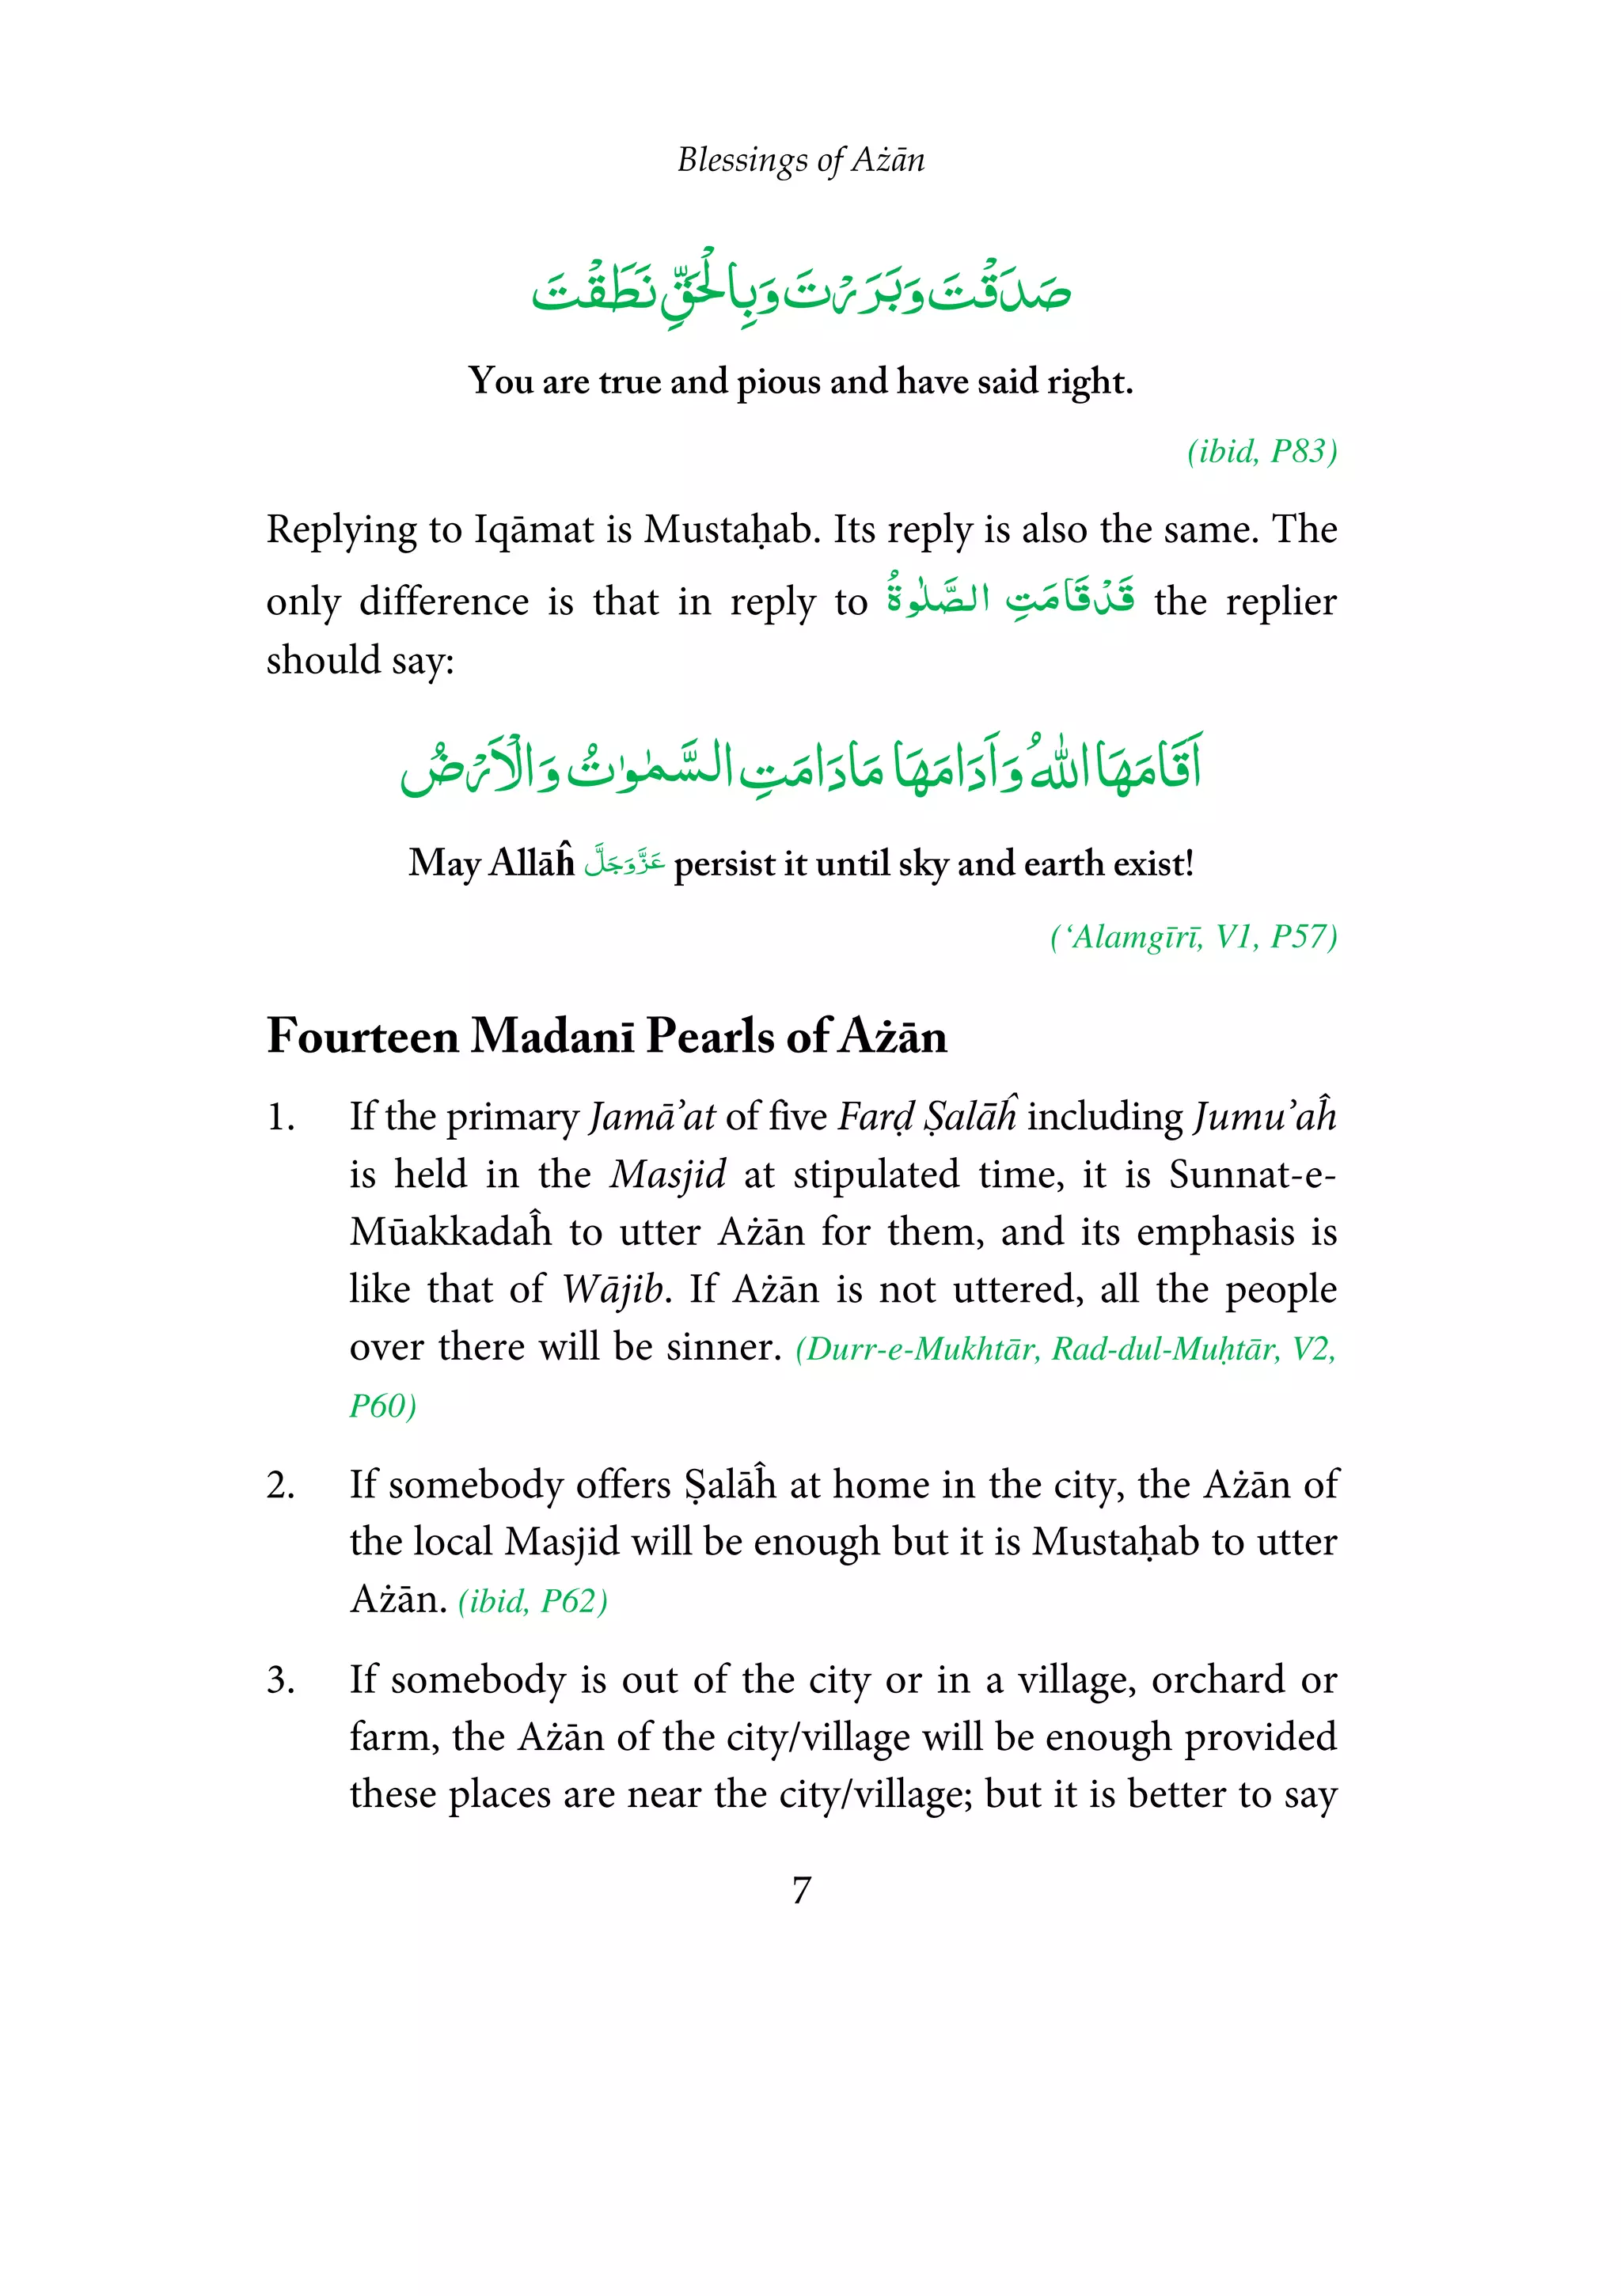 Blessings of Ażān
صَدَقْتَ وَبَرَرْتَ وَبِالْحَقِّ نَطَقْتَ
You are true and pious and have said right.
(ibid, P83)
Replying to Iqāmat is Mustaḥab. Its reply is also the same. The
only difference is that in reply to قَدْقَامَتِ الصَّلٰوةُ the replier
should say:
اَقَامَهَا اللّٰهُ وَاَدَامَهَا مَادَامَتِ السَّمٰوٰتُ وَالْاَرْضُ
May Allāĥ عَزَّوَجَلَّ persist it until sky and earth exist!
(‘Alamgīrī, V1, P57)
Fourteen Madanī Pearls of Ażān
1. If the primary Jamā’at of five Farḍ Ṣalāĥ including Jumu’aĥ
is held in the Masjid at stipulated time, it is Sunnat-e-
Mūakkadaĥ to utter Ażān for them, and its emphasis is
like that of Wājib. If Ażān is not uttered, all the people
over there will be sinner. (Durr-e-Mukhtār, Rad-dul-Muḥtār, V2,
P60)
2. If somebody offers Ṣalāĥ at home in the city, the Ażān of
the local Masjid will be enough but it is Mustaḥab to utter
Ażān. (ibid, P62)
3. If somebody is out of the city or in a village, orchard or
farm, the Ażān of the city/village will be enough provided
these places are near the city/village; but it is better to say
7